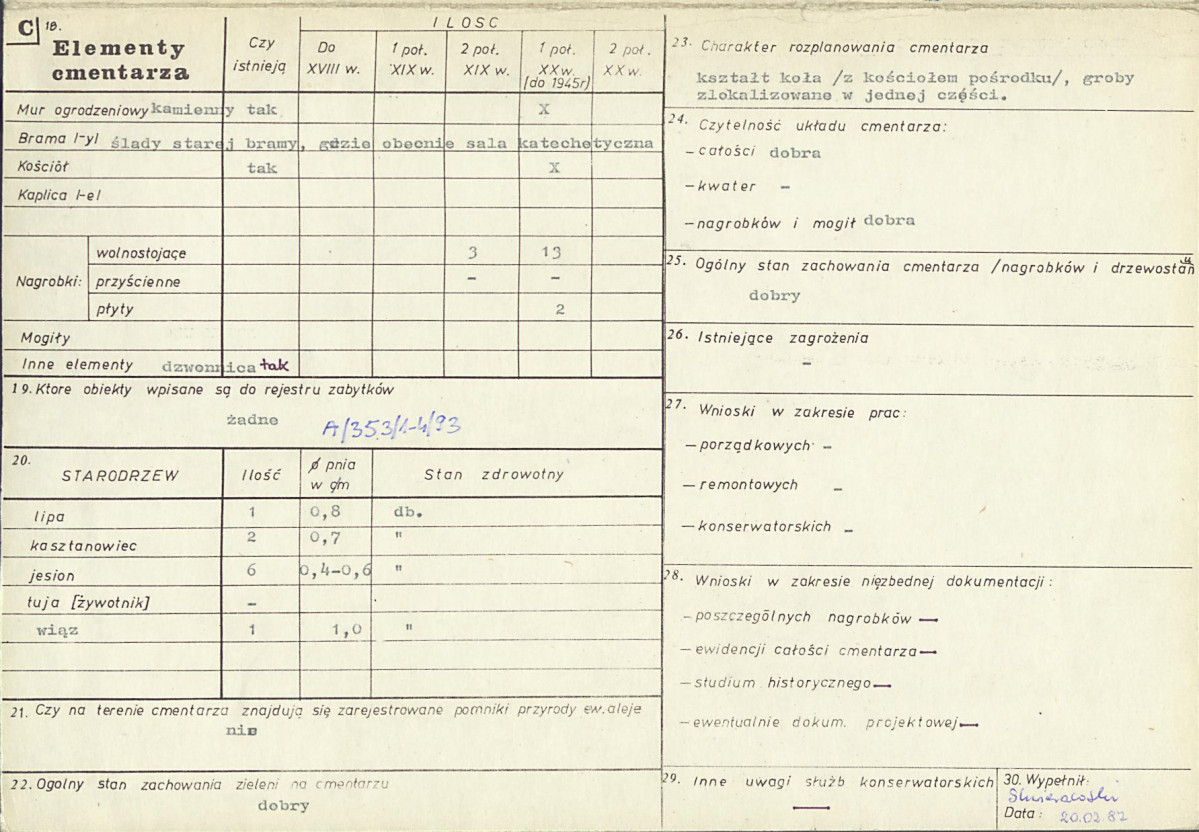 C 18.
Elementy cmentarza
Czy istnieją
ILOSC
Do XVIII w.
1 poł. XIX w.
2 poł. XIX w.
1 poł. XX w. [do 1945r]
2 poł. XX w.
Mur ogrodzeniowy kamienny tak X
Brama /-y/ ślady starej bramy, gdzie obecnie sala katechetyczna
Kościół tak X
Kaplica /-e/
Nagrobki:
wolnostojące 3 13
przyścienne - -
płyty 2
Mogiły
Inne elementy dzwonnica tak
19. Ktore obiekty wpisane są do rejestru zabytków
żadne A/353/1-4/93
20.
STARODRZEW Ilość ∅ pnia w q/m Stan zdrowotny
lipa 1 0,8 db.
kasztanowiec 2 0,7 "
jesion 6 0,4-0,6 "
tuja [żywotnik] -
wiąz 1 1,0 "
21. Czy na terenie cmentarza znajdują się zarejestrowane pomniki przyrody ew. aleje
nie
22. Ogolny stan zachowania zieleni na cmentarzu
dobry
23. Charakter rozplanowania cmentarza
kształt koła /z kościołem pośrodku/, groby
zlokalizowane w jednej części.
24. Czytelność układu cmentarza:
- całości dobra
- kwater -
- nagrobków i mogił dobra
25. Ogólny stan zachowania cmentarza /nagrobków i drzewostanu
dobry
26. Istniejące zagrożenia
-
27. Wnioski w zakresie prac:
- porządkowych -
- remontowych -
- konserwatorskich -
28. Wnioski w zakresie nięzbednej dokumentacji:
- poszczególnych nagrobków —
- ewidencji całości cmentarza —
- studium historycznego —
- ewentualnie dokum. projektowej —
29. Inne uwagi służb konserwatorskich
—
30. Wypełnił:
Data: 20.02.87